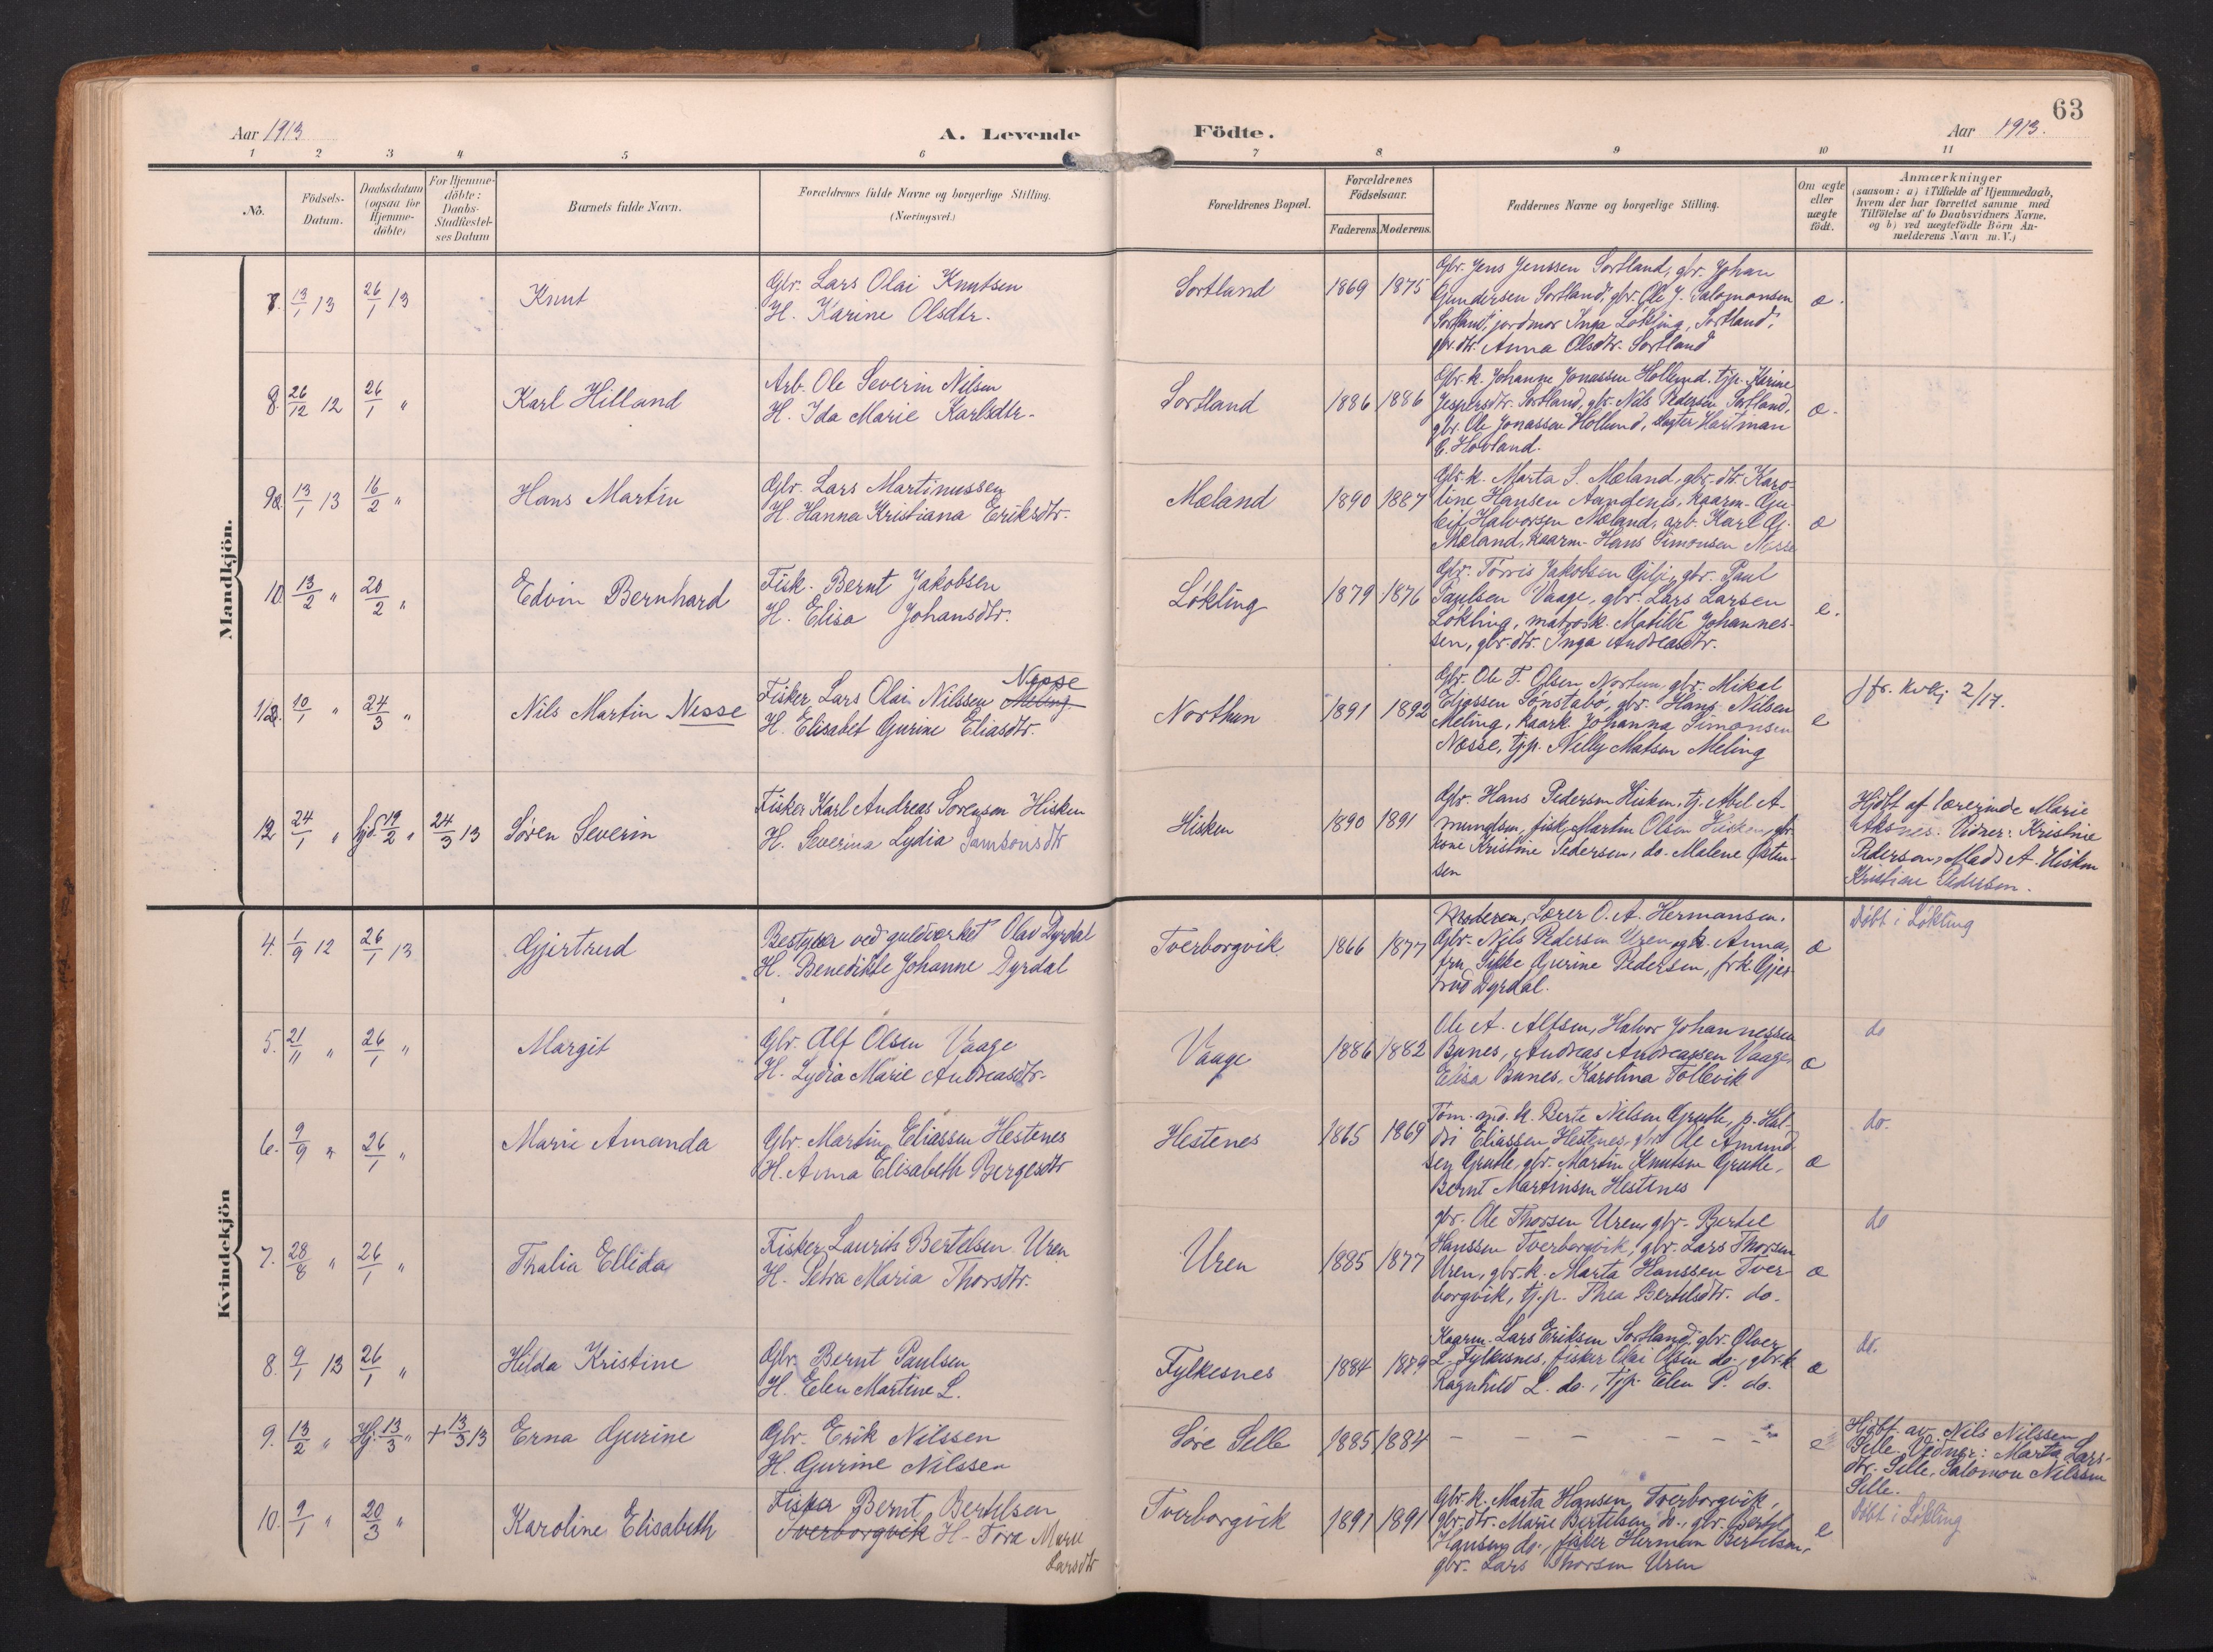 63
Aar 1913
A. Levende
Födte.
Aar 1913.
1 2 3 4 5 6 7 8 9 10 11
No.
Födsels-
Datum.
Daabsdatum
(ogsaa for
Hjemme-
döbte)
For Hjemme-
döbte:
Daabs-
Stadfæstel-
ses Datum
Barnets fulde Navn.
Forældrenes fulde Navne og borgerlige Stilling.
(Næringsvei.)
Forældrenes Bopæl.
Forældrenes
Födselsaar.
Faderens. Moderens.
Faddernes Navne og borgerlige Stilling.
Om ægte
eller
uægte
födt.
Anmærkninger
(saasom: a) i Tilfælde af Hjemmedaab,
hvem der har forrettet samme med
Tilföielse af to Daabsvidners Navne,
og b) ved uægtefödte Börn An-
melderens Navn m. V.)
Mandkjön.
7. 13/1 13 26/1 13 Knut
Gbr. Lars Olai Knutsen
H. Karine Olsdtr.
Sortland 1869 1875
Gbr. Jens Jenssen Sortland, gbr. Johan
Gundersen Sortland, gbr. Ole J. Salomonsen
Sortland, jordmor Inga Løkling, Sortland,
gbr. dtr. Anna Olsdtr. Sortland
æ.
8. 26/12 12 26/1 " Karl Hilland
Arb. Ole Severin Nilsen
H. Ida Marie Karlsdtr.
Sortland 1886 1886
Gbr. k. Johanne Jonassen Hollund, tjp. Karine
Jespersdtr. Sortland, gbr. Nils Pedersen Sortland,
gbr. Ole Jonassen Hollund, slagter Hartman
E. Hovland.
æ.
9. 13/1 13 16/2 " Hans Martin
Gbr. Lars Martinussen
H. Hanna Kristiana Eriksdtr.
Mæland 1890 1887
Gbr. k. Marta S. Mæland, gbr. dtr. Karo-
line Hansen Aandenes, kaarm. Gu-
leif Halvorsen Mæland, arb. Karl G.
Mæland, kaarm. Hans Simonsen Næsse
æ
10. 13/2 " 20/2 " Edvin Bernhard
Fisk. Bernt Jakobsen
H. Elisa Johansdtr.
Løkling 1879 1876
Gbr. Tørris Jakobsen Gilje, gbr. Paul
Paulsen Vaage, gbr. Lars Larsen
Løkling, matrosk. Matilde Johannes-
sen, gbr. dtr. Inga Andreasdtr.
e.
11. 10/1 " 24/3 " Nils Martin Nesse
Næsse
Fisker Lars Olai Nilssen Meling
H. Elisabet Gurine Eliasdtr.
Northun 1891 1892
Gbr. Ole T. Olsen Northun, gbr. Mikal
Eliassen Sønstabø, gbr. Hans Nilsen
Meling, kaark. Johanna Simonsen
Næsse, tjp. Nelly Matsen Meling
e
Jfr. kvkj 2/17.
12 24/1 " Hjd. 19/2 " 24/3 13 Søren Severin
Fisker Karl Andreas Sørensen Hisken
H. Severina Lydia Samsonsdtr
Hisken 1890 1891
Gbr. Hans Pedersen Hisken, tj. Abel A-
mundsen, fisk. Martin Olsen Hisken, gbr.
kone Kristine Pedersen, do. Malene Østen-
sen
Hjdbt af lærerinde Marie
Aksnes. Vidner: Kristine
Pedersen, Mads A. Hisken
Kristine Pedersen.
Kvindekjön
4. 1/9 12 26/1 13 Gjertrud
Bestyrer ved guldværket Olav Dyrdal
H. Benedikte Johanne Dyrdal
Tverborgvik 1866 1877
Moderen, Lærer O. A. Hermansen,
Gbr. Nils Pedersen Uren og k. Anna,
fru Sikke Gurine Pedersen, frk. Gjer-
trud Dyrdal.
æ
Døbt i Løkling
5. 21/11 " 26/1 " Margit
Gbr. Alf Olsen Vaage
H. Lydia Marie Andreasdtr.
Vaage 1886 1882
Ole A. Alfsen, Halvor Johannessen
Bunes, Andreas Andreassen Vaage,
Elisa Bunes, Karolina Tollevik
æ
do
6. 9/9 " 26/1 " Marie Amanda
Gbr. Martin Eliassen Hestenes
H. Anna Elisabeth Bergesdtr
Hestenes 1865 1869
Tøm. md. k. Berte Nilsen Grutle, p. Hal-
dri Eliassen Hestenes, gbr. Ole Amund-
sen Grutle, gbr. Martin Knutsen Grutle,
Bernt Martinsen Hestenes
æ
do.
7. 28/8 " 26/1 " Thalia Ellida
Fisker Laurits Bertelsen Uren
H. Petra Maria Thorsdtr.
Uren 1885 1877
gbr. Ole Thorsen Uren, gbr. Bertel
Hanssen Tverborgvik, gbr. Lars Thorsen
Uren, gbr. k. Marta Hanssen Tver-
borgvik, tj.p. Thea Bertelsdtr. do.
æ
do
8. 9/1 13 26/1 " Hilda Kristine
Gbr. Bernt Paulsen
H. Elen Martine L.
Fylkesnes 1884 1879
Kaarm. Lars Eriksen Sortland, gbr. Olver
L. Fylkesnes, fisker Olai Olsen do., gbr. k.
Ragnhild L. do., tjp. Elen P. do.
æ
do.
9. 13/2 " Hj. 13/3 " + 13/3 13 Erna Gurine
Gbr. Erik Nilssen
H. Gurine Nilssen
Søre Selle 1885 1884
- - - - - - -
e
Hjdbt. av Nils Nilssen
Selle. Vidner: Marta Lars-
dtr. Selle, Salomon Nilssen
Selle.
10. 9/1 " 20/3 " Karoline Elisabeth
Fisker Bernt Bertelsen
Tverborgvik H. Tora Marie
Larsdtr
Tverborgvik 1891 1891
Gbr. k. Marta Hansen Tverborgvik,
gbr. dtr. Marie Bertelsen do., gbr. Bertel
Hansen do., fisker Herman Bertelsen,
gbr. Lars Thorsen Uren
e
Døbt i Løkling